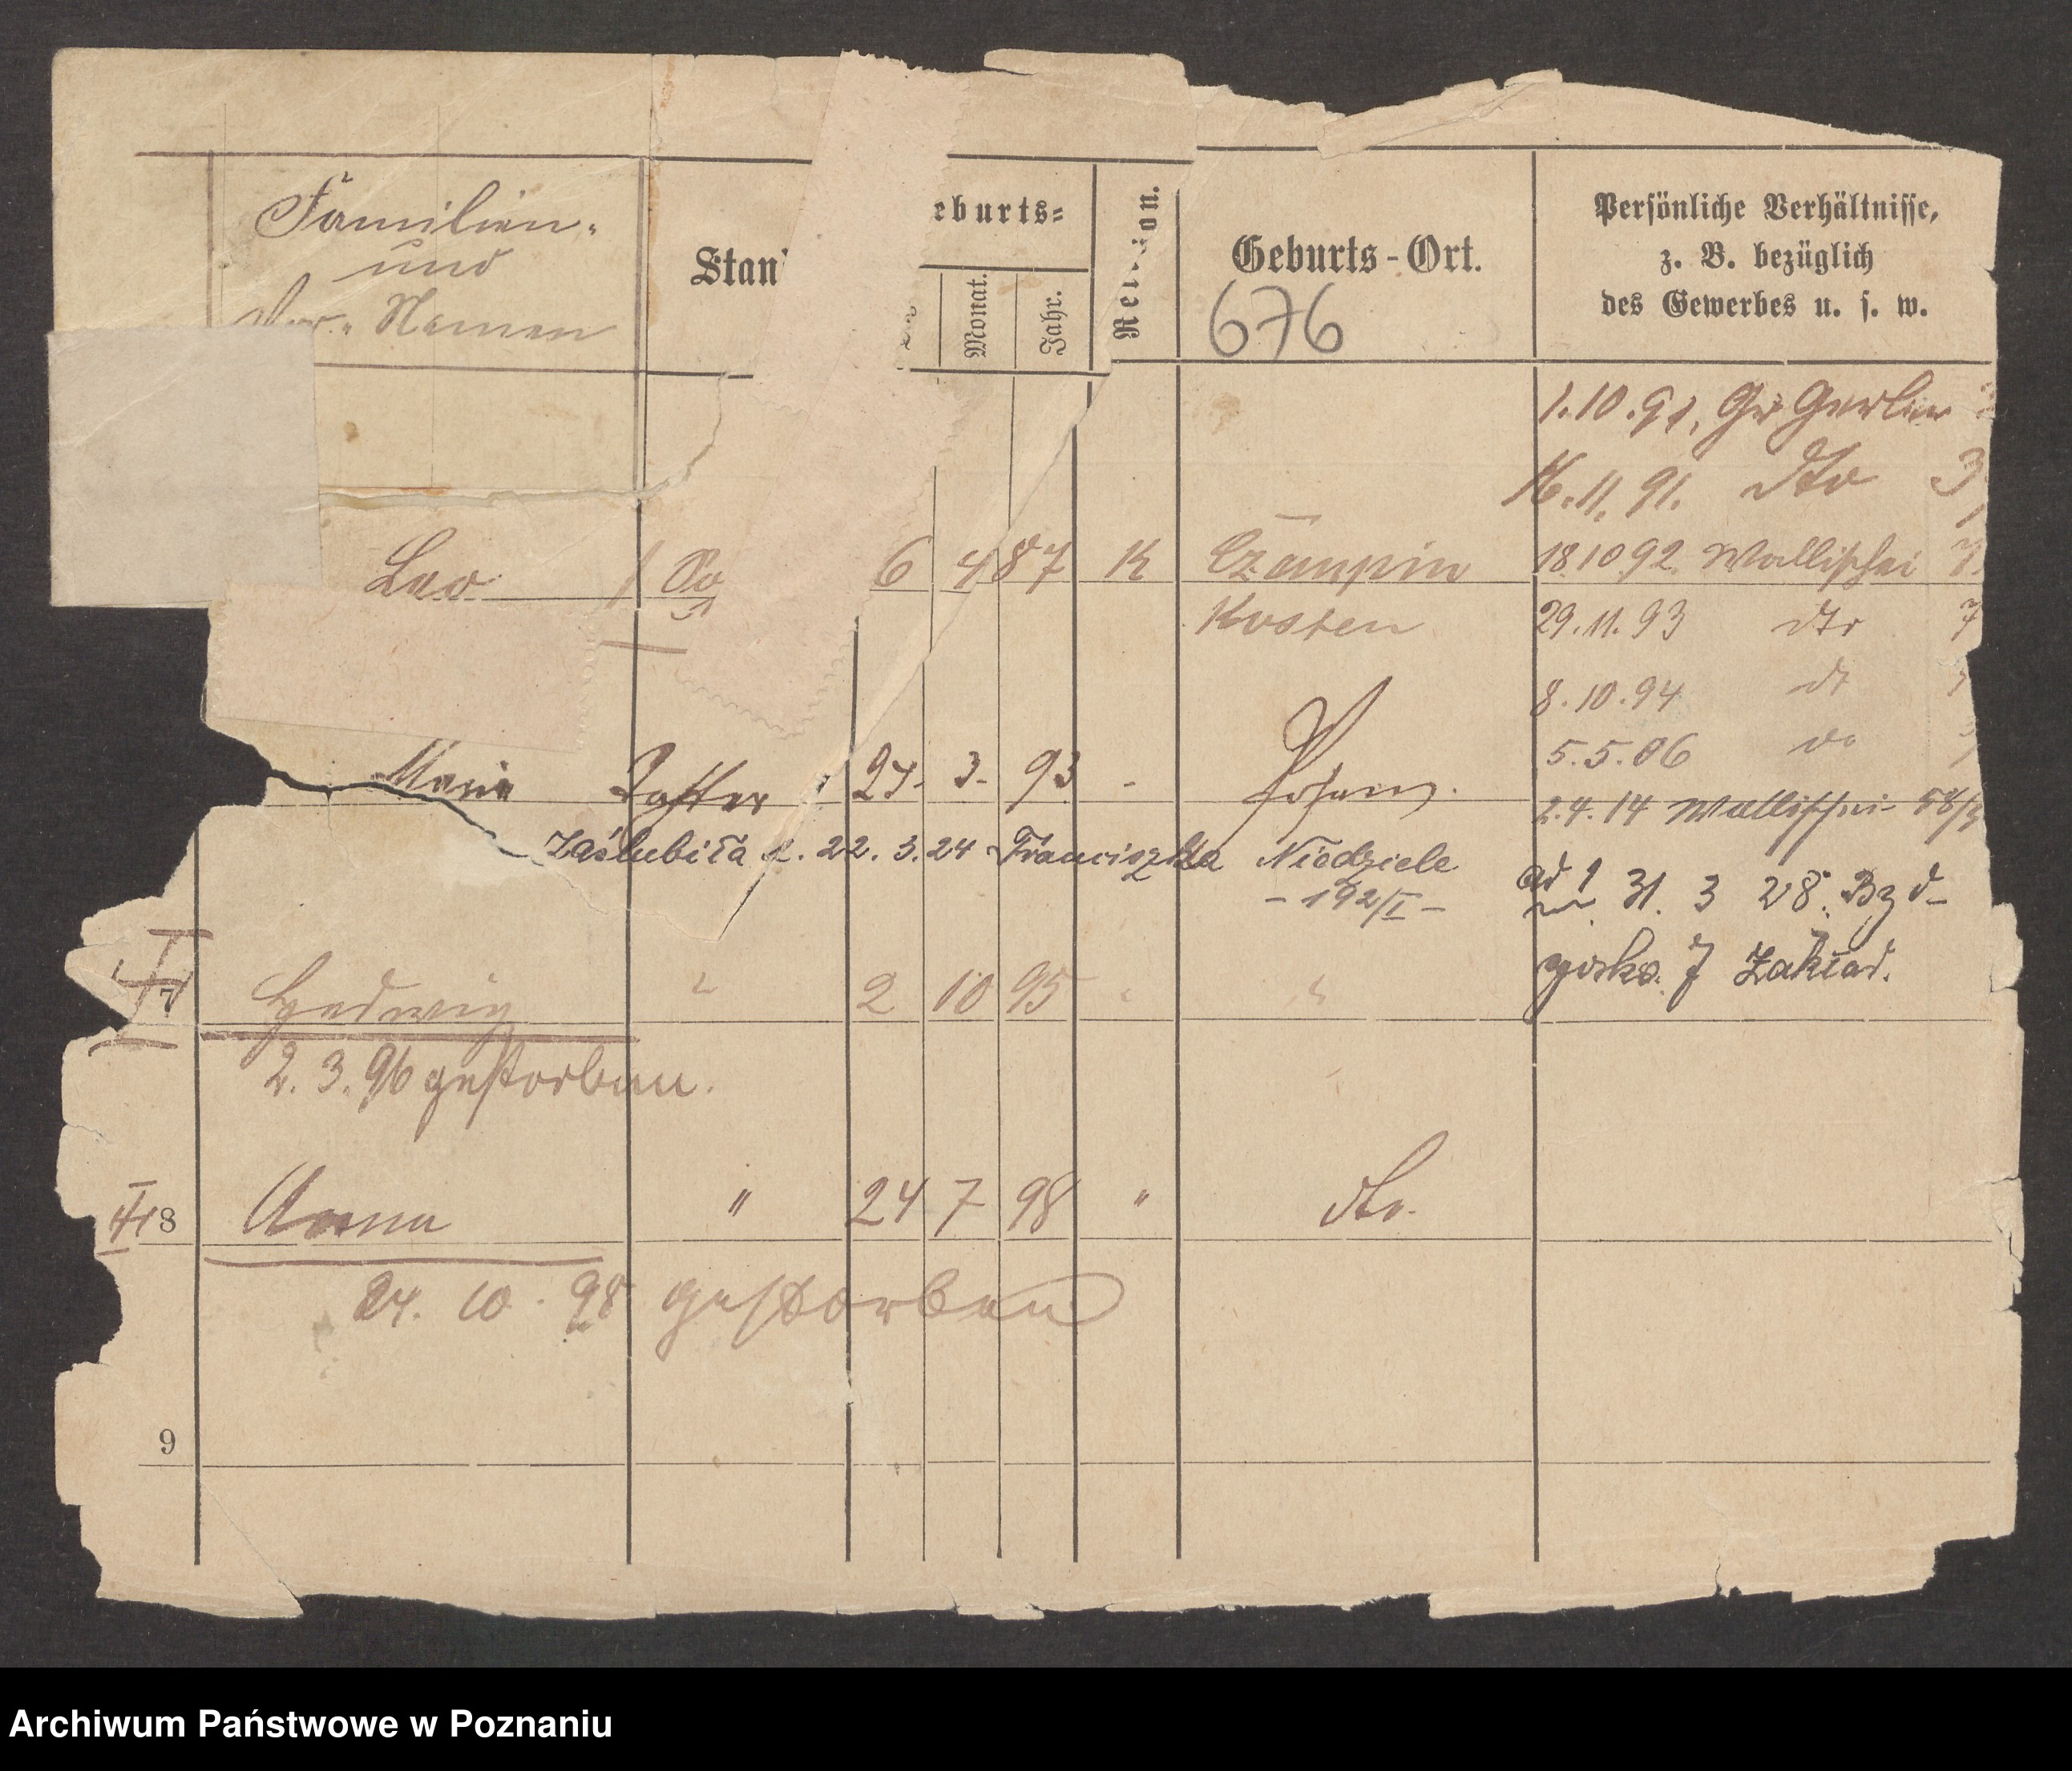 Familien-
und
Vor-Namen
Stan
eburts-
Monat.
Jahr.
Geburts-Ort.
676
Persönliche Verhältnisse,
z. B. bezüglich
des Gewerbes u. s. w.
1.10.91, Gr Gerber
16.11.91. dto 3
Leo So 6 4 87 K Czempin
18.10.92. Wallischei 7
Kosten
29.11.93 dto 7
8.10.94 dt
5.5.06 do
Marie Tochter 27. 3. 93 Posen.
2.4.14 Wallischei 58/3
Zaślubiła d. 22. 3. 24 Franciszka Niedziele
- 192/I -
ad 1 31. 3 28. Bzd-
goska 7 Zakład.
7 Hedwig " 2 10 95 " "
2. 3. 96 gestorben.
8 Anna " 24 7 98 " dto.
24. 10. 98 gestorben
9
Archiwum Państwowe w Poznaniu